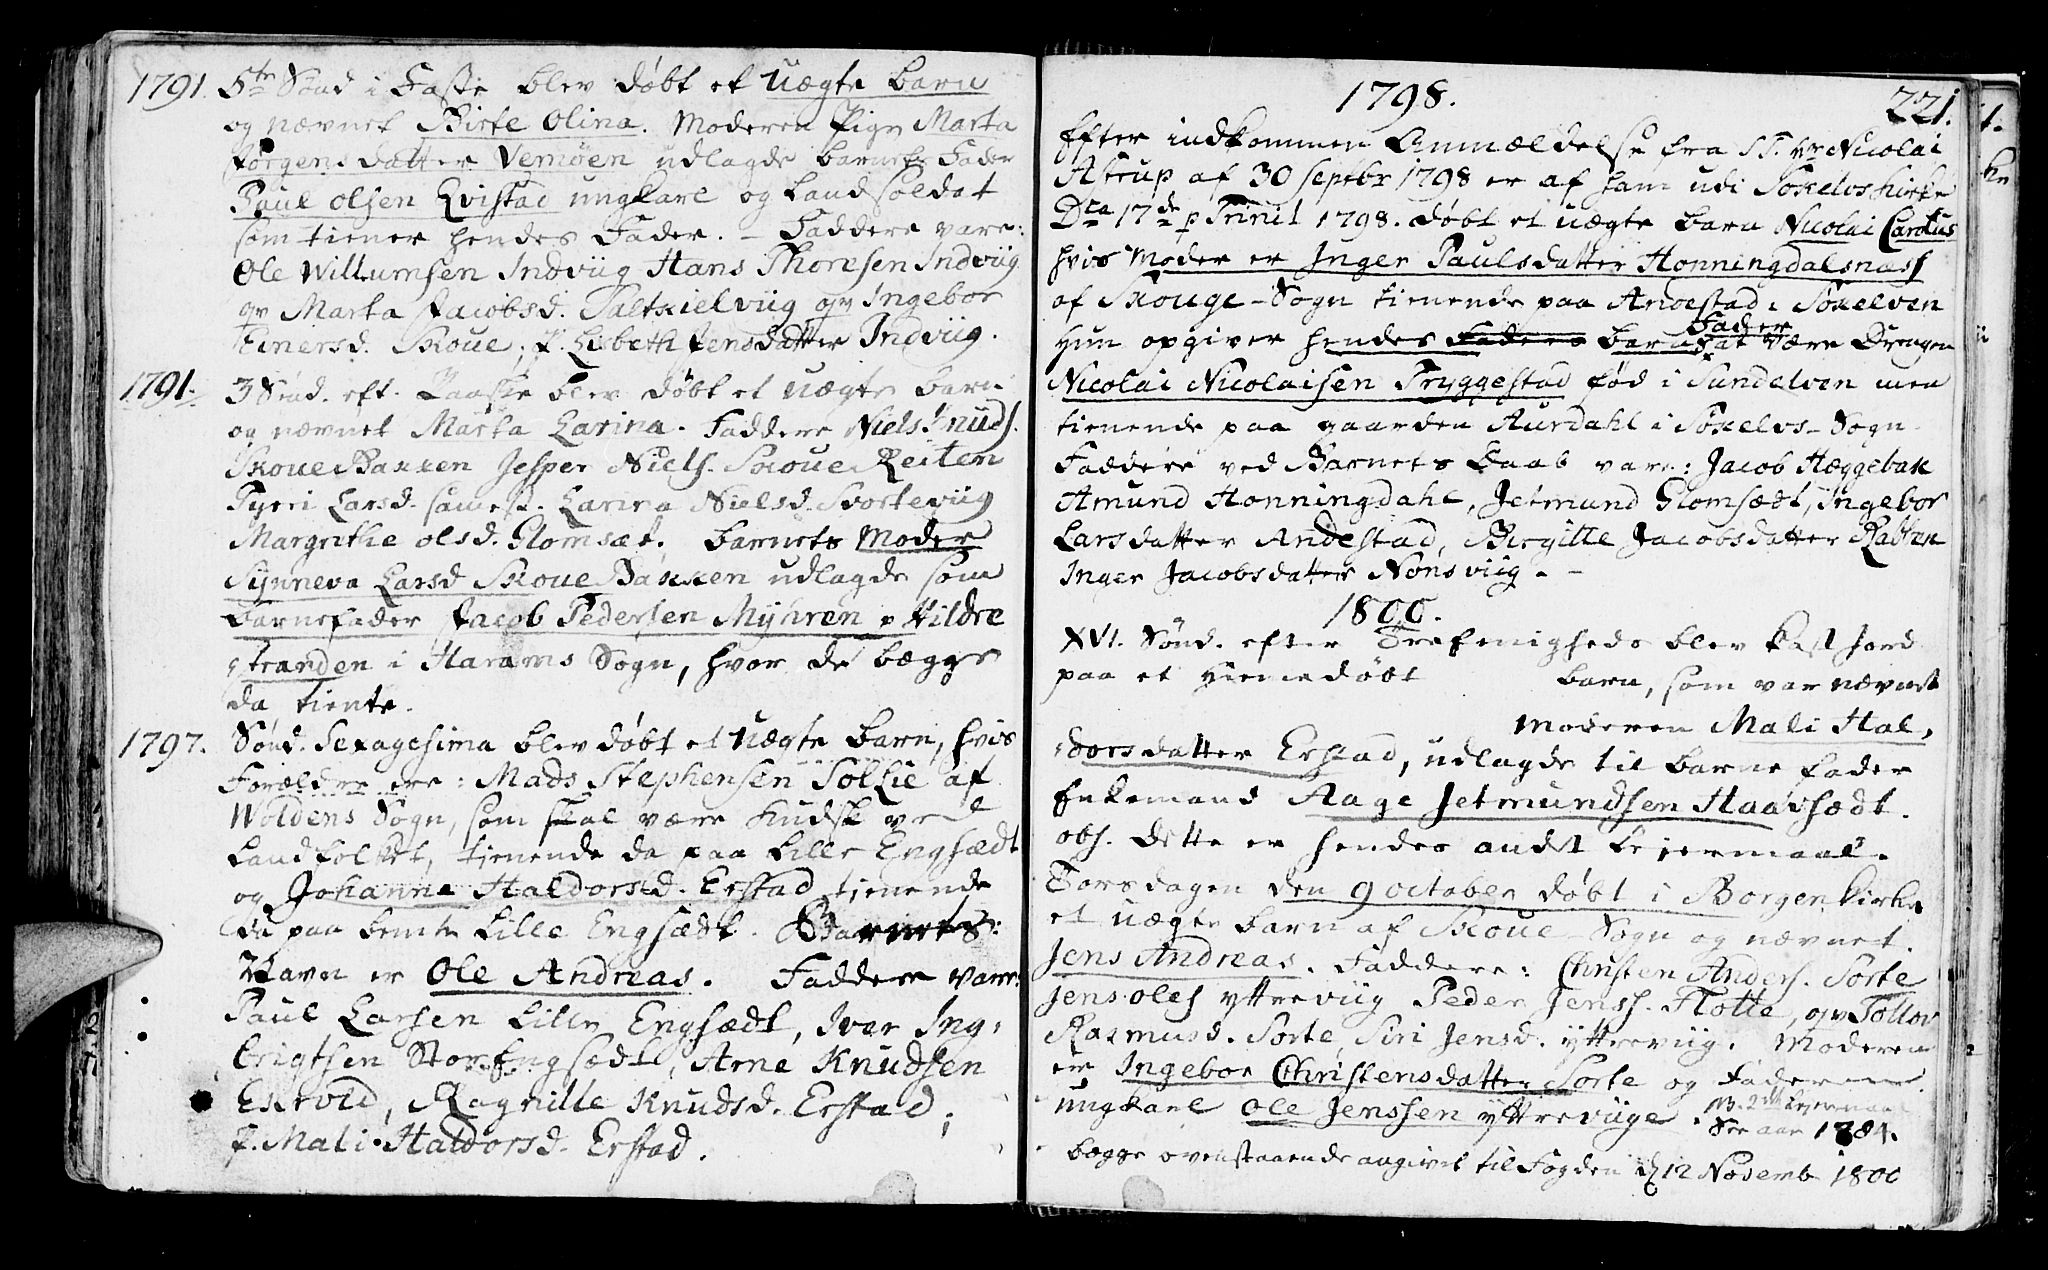 1791. 5te Sönd i Faste blev döbt et Uægte barn
og nævnet Birte Olina. Moderen Pige Marta
Jörgensdatter Vemöen udlagde barnets Fader
Paul Olsen Qvistad ungkarl og Landsoldat
som tiener hendes Fader. - Faddere vare:
Ole Willumsen Indviig Hans Thoresen Indviig
qv Marta Jacobsd. Saltkielviig qv Ingebor
Einersd. Skoue, P. Lisbeth Jensdatter Indviig.
1791. 3 Sönd. eft. Paaske blev döbt et uægte barn
og nævnet Marta Larina. Faddere Niels Knuds.
Skoue Bakken Jesper Niels. Skoue Reiten
Pyeri Larsd. samest. Larina Nielsd. Svorteviig
Margrethe Olsd. Glomsæt. barnets Moder
Synneva Larsd Skoue Bakken udlagde som
barnefader Jacob Pedersen Myhren p Hildre
stranden i Harams Sogn, hvor de begge
da tiente.
1797. Sönd. Sexagesima blev döbt et Uægte barn, hvis
Forældre ere: Mads Stephensen Sollie af
Woldens Sogn, som skal være Kudsk ved
Landfolket, tienende da paa Lille Engsædt
og Johanne Haldorsd. Erstad tienende
da paa bemte Lille Engsædt. Barnets
Navn er Ole Andreas. Faddere vare:
Paul Larsen Lille Engsædt, Iver Ing-
brigtsen StorEngsædt, Arne Knudsen
Ekrvid, Ragnille Knudsd. Erstad,
P. Mali Haldorsd. Erstad.
1798. 221.
Efter indkommen Anmældelse fra ST. Hr Nicolai
Astrup af 30 Septbr 1798 er af ham udi Sökelvs kirke
Dca 17de p Trinit 1798. döbt et uægte barn Nicolai Carolus
hvis Moder er Inger Paulsdatter Honningdalsness
af Skouge-Sogn tienende paa Andestad i Sökelven
Fader
Hun opgiver hendes Faders barns at være Drengen
Nicolai Nicolaisen Tryggestad föd i Sundelven men
tienende paa gaarden Aurdahl i Sökelvs-Sogn.
Faddere ved Barnets Daab vare: Jacob Hæggebak
Amund Honningdahl, Jetmund Glomsædt, Ingebor
Larsdatter Andestad, Birgitte Jacobsdatter Ratvik
Inger Jacobsdatter Nonsviig. -
1800.
XVI. Sönd. efter Trefenigheds blev kast Jord
paa et Hiemedöbt barn, som var nævnt
Moderen Mali Hal-
dorsdatter Erstad, udlagde til barnefader
Enkemand Aage Jetmundsen Haavsædt.
obs. Dette er hendes andet Leiermaal.
Torsdagen den 9 October döbt i Borgen kirke
et uægte barn af Skoue Sogn og nævnet
Jens Andreas. Faddere: Christen Anders. Sorte
Jens Oles Yttreviig Peder Jenss. Flotte, qv Tollov
Rasmusd. Sorte, Siri Jensd. Yttreviig. Moderen
er Ingebor Christensdatter Sorte og Faderen
ungkarl Ole Jenssen Yttreviige. NB. 2det Leiermaal
See aar 1784.
begge ovenstaaende angivet til Fogden d 12 Novemb 1800